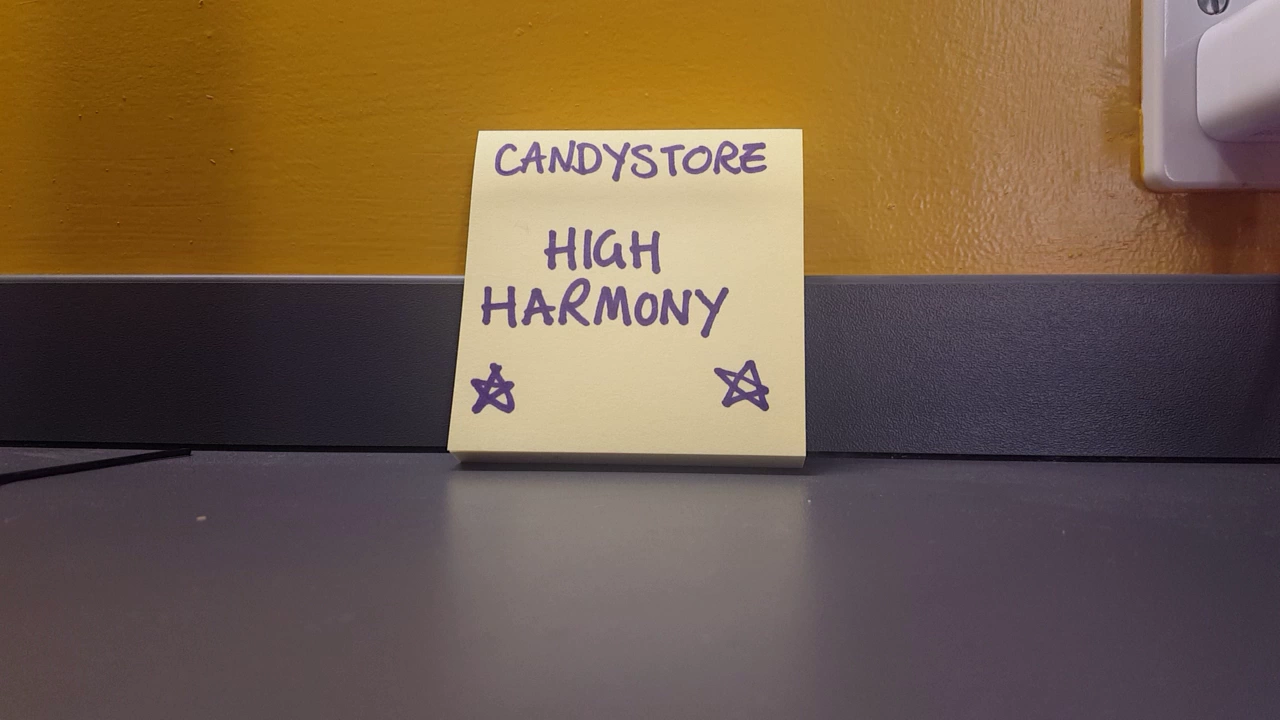 CANDYSTORE
HIGH
HARMONY